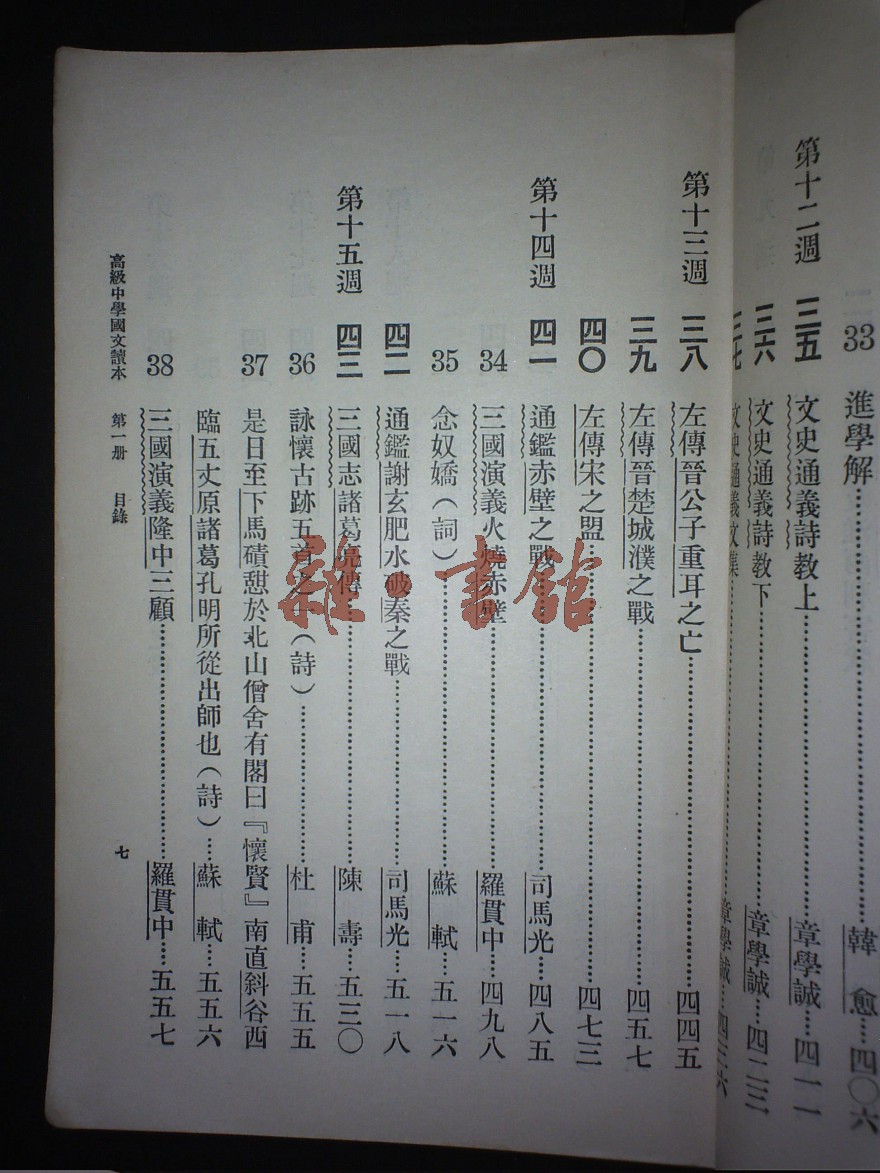 33 進學解……韓愈……四〇六
第十二週 三五 文史通義詩教上……章學誠……四一一
三六 文史通義詩教下……章學誠……四二三
三七 文史通義文集……章學誠……四三六
第十三週 三八 左傳晉公子重耳之亡……四四五
三九 左傳晉楚城濮之戰……四五七
四〇 左傳宋之盟……四七三
第十四週 四一 通鑑赤壁之戰……司馬光……四八五
34 三國演義火燒赤壁……羅貫中……四九八
35 念奴嬌(詞)……蘇軾……五一六
四二 通鑑謝玄肥水破秦之戰……司馬光……五一八
第十五週 四三 三國志諸葛亮傳……陳壽……五三〇
36 詠懷古跡五首之一(詩)……杜甫……五五五
37 是日至下馬磧憩於北山僧舍有閣曰『懷賢』南直斜谷西
臨五丈原諸葛孔明所從出師也(詩)…蘇軾…五五六
38 三國演義隆中三顧……羅貫中…五五七
高級中學國文讀本 第一册 目錄 七
書館